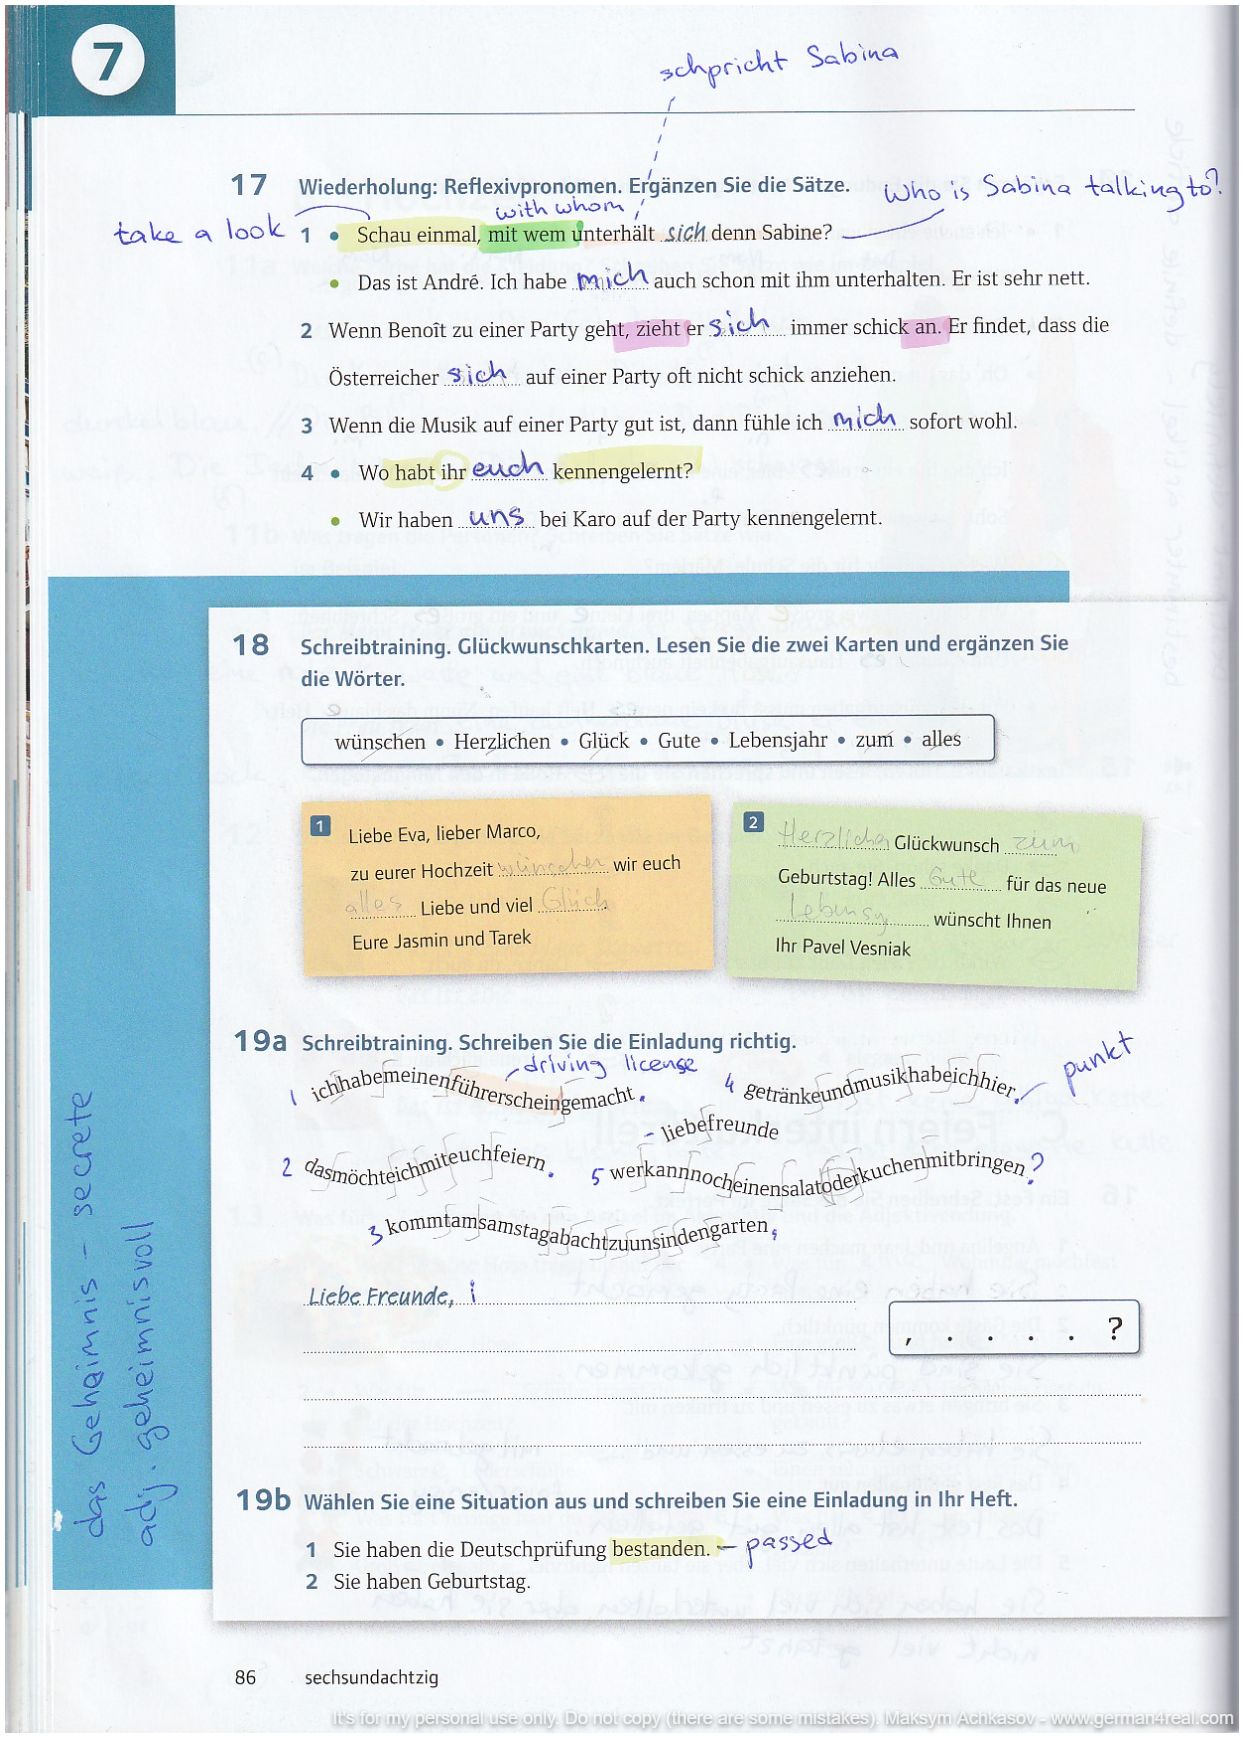 7
schpricht Sabina
17 Wiederholung: Reflexivpronomen. Ergänzen Sie die Sätze.
Who is Sabina talking to?
with whom
take a look
1 • Schau einmal, mit wem unterhält sich denn Sabine?
• Das ist André. Ich habe mich auch schon mit ihm unterhalten. Er ist sehr nett.
2 Wenn Benoît zu einer Party geht, zieht er sich immer schick an. Er findet, dass die
Österreicher sich auf einer Party oft nicht schick anziehen.
3 Wenn die Musik auf einer Party gut ist, dann fühle ich mich sofort wohl.
4 • Wo habt ihr euch kennengelernt?
• Wir haben uns bei Karo auf der Party kennengelernt.
18 Schreibtraining. Glückwunschkarten. Lesen Sie die zwei Karten und ergänzen Sie
die Wörter.
wünschen • Herzlichen • Glück • Gute • Lebensjahr • zum • alles
1
Liebe Eva, lieber Marco,
zu eurer Hochzeit wünschen wir euch
alles Liebe und viel Glück.
Eure Jasmin und Tarek
2
Glückwunsch zum
Geburtstag! Alles Gute für das neue
Lebensj wünscht Ihnen
Ihr Pavel Vesniak
19a Schreibtraining. Schreiben Sie die Einladung richtig.
driving license
punkt
1 ichhabemeinenführerscheingemacht.
4 getränkeundmusikhabeichhier.
- liebefreunde
2 dasmöchteichmiteuchfeiern.
5 werkannnocheinensalatoderkuchenmitbringen?
3 kommtamsamstagabachtzuunsindengarten.
Liebe Freunde, i
, . . . . ?
das Gehaimnis - secrete
adj. geheimnisvoll
19b Wählen Sie eine Situation aus und schreiben Sie eine Einladung in Ihr Heft.
1 Sie haben die Deutschprüfung bestanden. - passed
2 Sie haben Geburtstag.
86 sechsundachtzig
It's for my personal use only. Do not copy (there are some mistakes). Maksym Achkasov - www.german4real.com